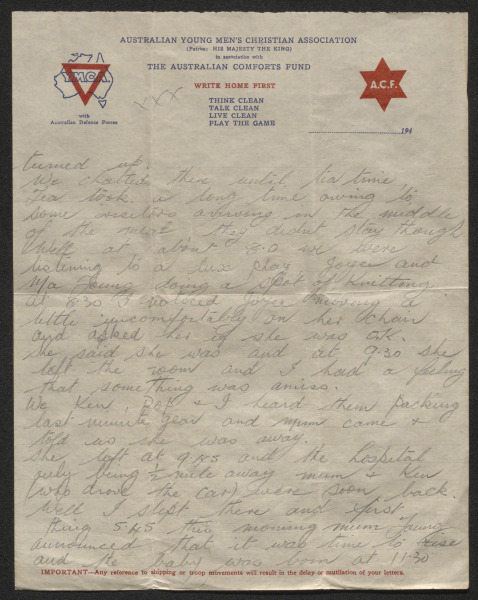 AUSTRALIAN YOUNG MEN'S CHRISTIAN ASSOCIATION
(Patron: HIS MAJESTY THE KING)
in association with
THE AUSTRALIAN COMFORTS FUND
YMCA
with
Australian Defence Forces
WRITE HOME FIRST
THINK CLEAN
TALK CLEAN
LIVE CLEAN
PLAY THE GAME
A.C.F.
194
xxx
turned up.
We chatted there until tea time,
Tea took a long time owing to
some visitors arriving in the middle
of the meal they didnt stay though
Well at about 8.0 we were
listening to a lux play Joyce and
Ma Young doing a spot of knitting
at 8.30 I noticed Joyce moving a
little uncomfortably on her chair
and asked her if she was O.K.
she said she was and at 9.30 she
left the room and I had a feeling
that something was amiss.
We Ken, & I heard them packing
last minute gear and mum came &
told us she was away.
She left at 9.45 and the hospital
only being ½ mile away mum & Ken
(who drove the car) were soon back.
Well I slept there and first
thing 5.45 this morning mum Young
announced that it was time to rise
and the baby was born at 11.30
IMPORTANT—Any reference to shipping or troop movements will result in the delay or mutilation of your letters.